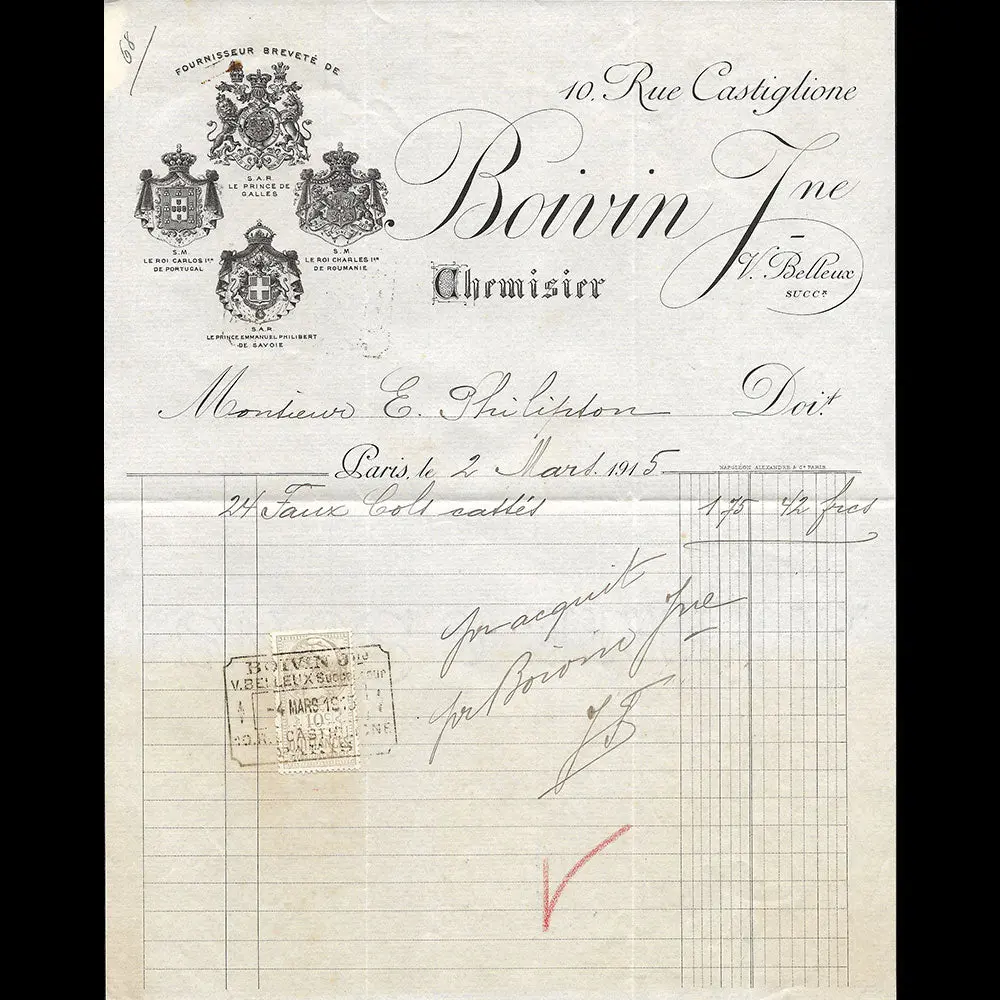 68
FOURNISSEUR BREVETÉ DE
S.A.R
LE PRINCE DE
GALLES
S.M.
LE ROI CARLOS 1er
DE PORTUGAL
S.M.
LE ROI CHARLES 1er
DE ROUMANIE
S.A.R
LE PRINCE EMMANUEL PHILIBERT
DE SAVOIE
10, Rue Castiglione
Boivin Jne
V. Belleux
SUCCR
Chemisier
Monsieur E. Philipson Doit
Paris, le 2 Mars 1915
NAPOLÉON ALEXANDRE & Cie PARIS
24 Faux Cols cassés 1 75 42 frcs
pr acquit
pr Boivin Jne
BOIVIN Jne
V. BELLEUX Successeur
-4 MARS 1915
10, R. CASTIGLIONE